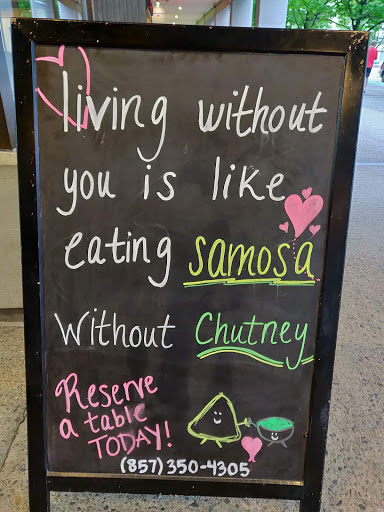 living without
you is like
eating samosa
Without Chutney
Reserve
a table
TODAY!
(857) 350-4305